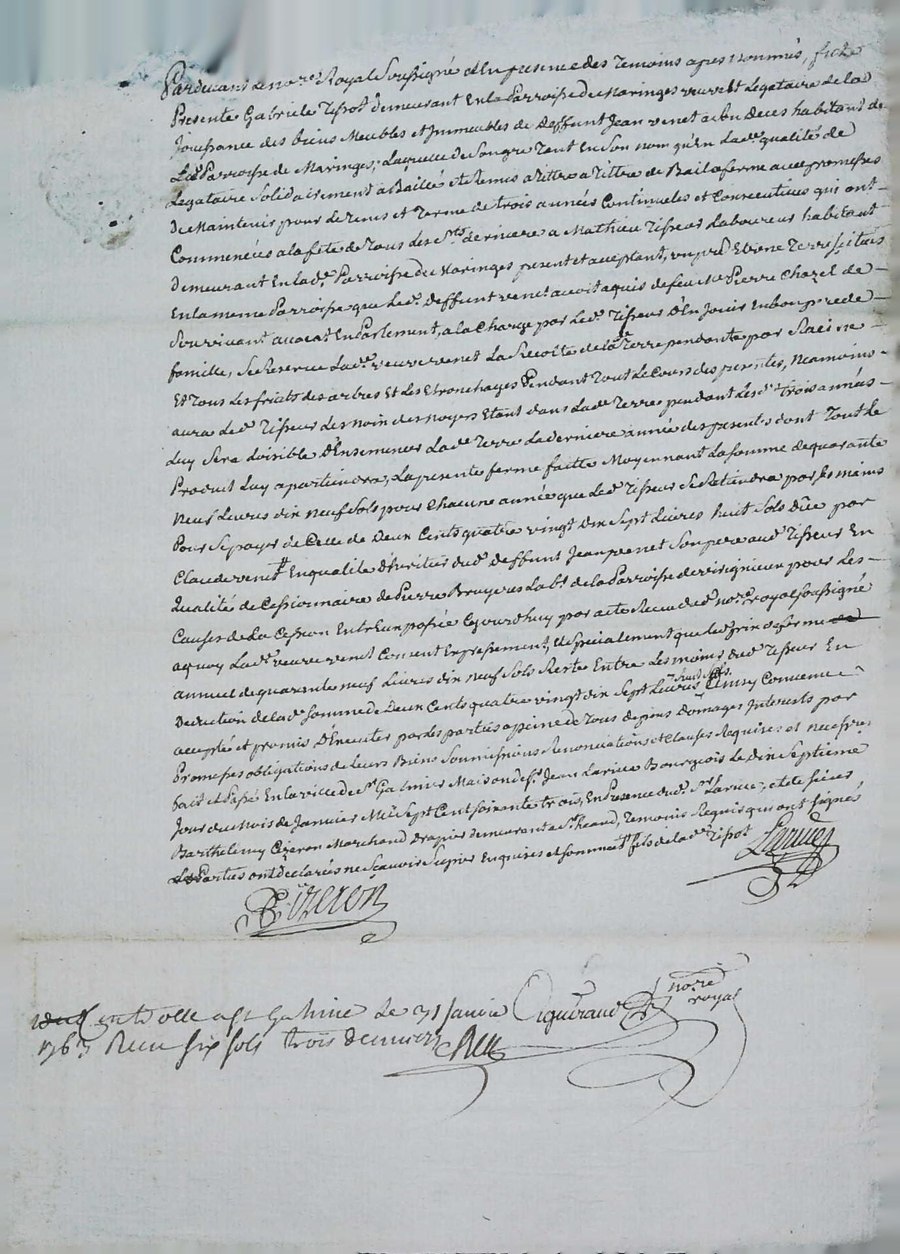 Pardevant Le no.re Royal Soussigné et En presence des Temoins apres nommés, fut
Presente Gabriele Tissot demeurant En la Parroisse de Maringes veuve et Legataire de la
Jouissance des biens Meubles et Immeubles de Deffunt Jean venet a son Deces habitant de
La d.e Parroisse de Maringes, Laquelle de Son gre Tant En Son nom qu'En La d.e qualité de
Legataire Solidairement à Baillé et Remis a Tittre de Bail a ferme avec promesses
De Maintenir pour Le Tems et Terme de trois années Continueles et Consecutives qui ont
Commencées a la fête de Tous Les S.ts derniere a Mathieu Tisseur Laboureur habitant
Demeurant En la d.e Parroisse de Maringes present et acceptant, un pré Et une Terre scitués
En la meme Parroisse que Le d. deffunt venet avoit aquis de feu M.e Pierre Chazel de
Son vivant avocat En Parlement, a la Charge par Le d. Tisseur d'En Jouir En bon pere de
famille, Se Reserve La d.e veuve venet La Recolte de la d.e Terre pendante par Racine
Et Tous Les fruits des arbres Et Les Etronchages Pendant Tout Le Cours des presentes, Neamoins
aura Le d. Tisseur Les Noix des Noyers Etant dans La d.e Terre pendant Les d. trois années
Luy Sera Loisible d'Ensemencer La d.e Terre La derniere année des presentes dont Tout Le
Produit Luy apartiendra, La presente ferme faitte Moyennant La Somme de quarante
Neuf Livres dix neuf Sols pour Chacune année que Le d. Tisseur Se Retiendra par Ses mains
Pour Se payer de Celle de Deux Cents quatre vingt Dix Sept Livres huit Sols Düe par
Claude venet En qualité d'Heritier du d. deffunt Jean venet Son pere au d. Tisseur En
Qualité de Cessionnaire de Pierre Bruyeres Lab.r de la Parroisse de virigneux pour Les
Causes de La Cession Entr'Eux passée Cejourd'huy par acte Recu du d. no.re royal soussigné
aquoy La d.e veuve venet Consent Expressement, Et Specialement que Le d. prix de ferme
annuel de quarante neuf Livres dix neuf Sols Reste Entre Les mains du d. Tisseur En
Deduction de la d.e Somme de Deux Cents quatre vingt dix Sept Livres huit sols. Ainsy Convenu
accepté et promis D'Executer par des parties a peine de Tous depens Domages Interests par
Promesses obligations de Leurs Biens Soumissions Renonciations et Clauses Requises et necess.res
fait et Passé En la ville de S.t Galmier Maison de S.r Jean Larue Bourgeois Le dix Septieme
Jour du Mois de Janvier Mil Sept Cent soixante trois, En Presence du d. S.r Larue, et de Sieur
Barthelemy Cizeron Marchand Drapier demeurant a S.t heand, Temoins Requis qui ont signés
Les Parties ont déclarées ne Scavoir Signer Enquises et sommées
Larue
Cizeron
no.re
royal
controlle a St Galmier le 31 Janvier
1763 Recu six sols trois deniers